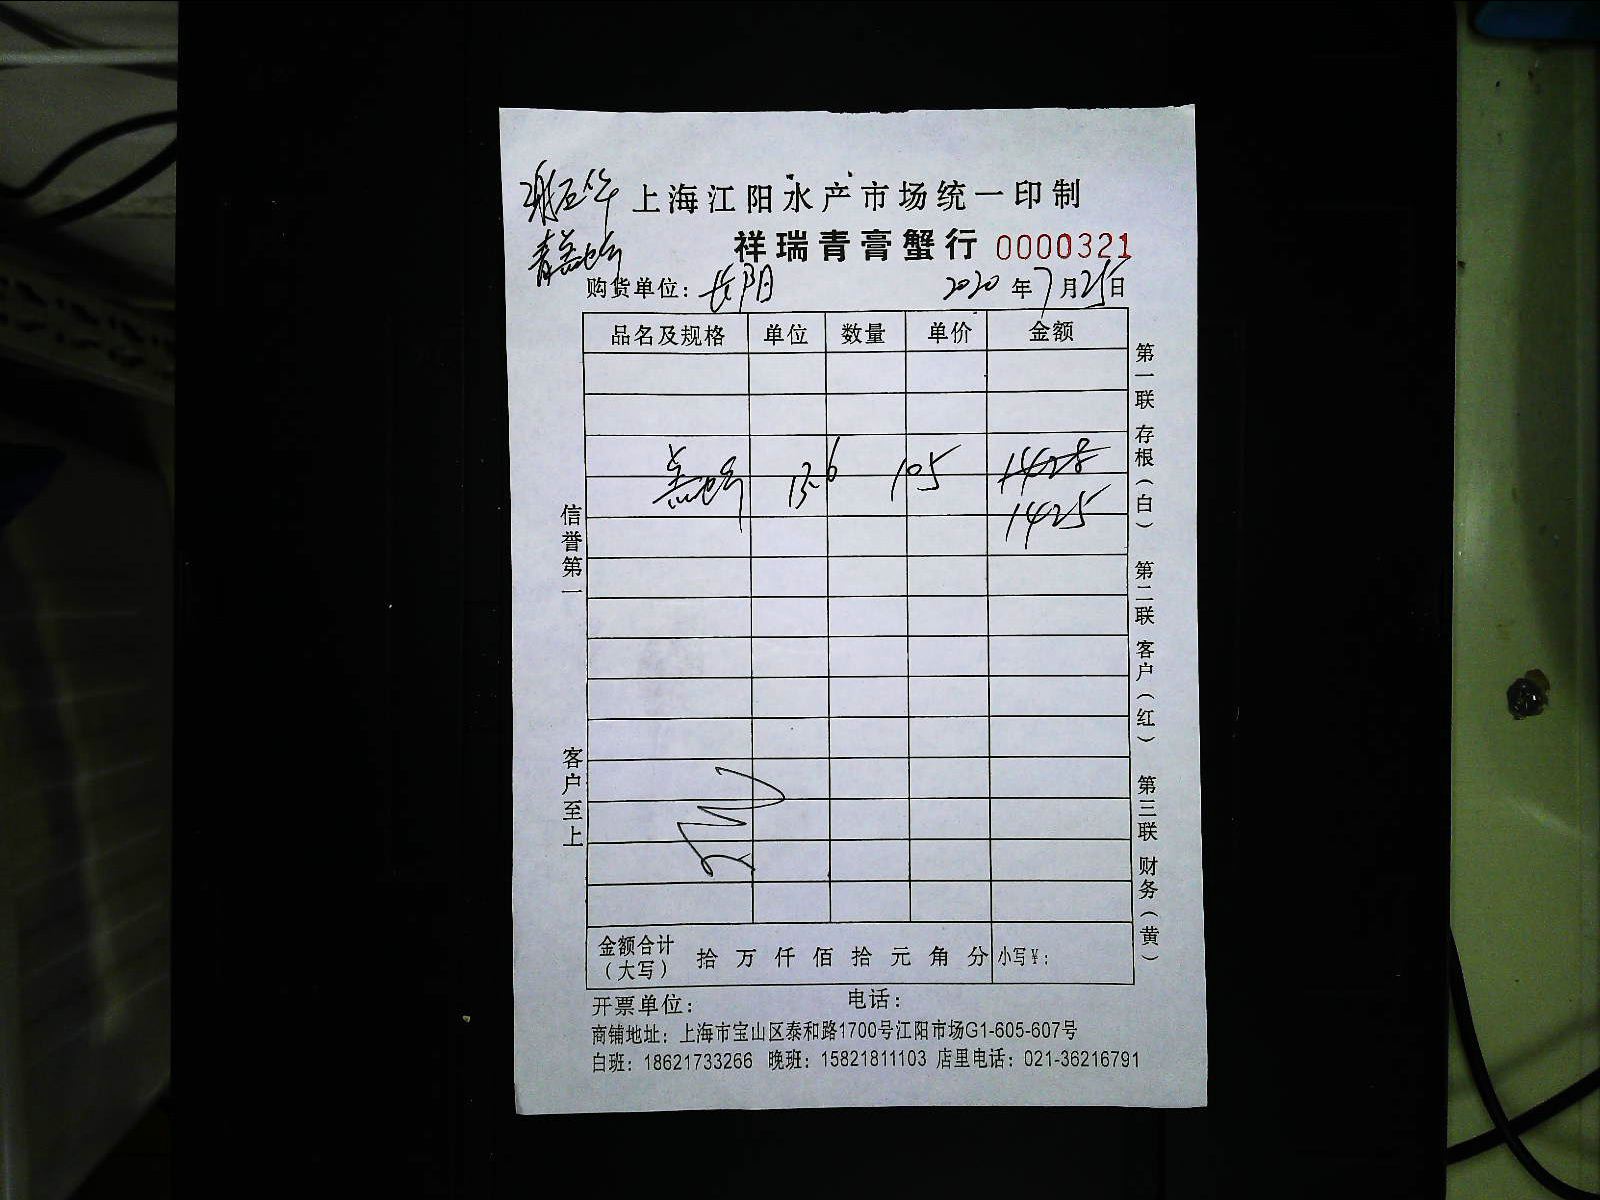 上海江阳水产市场统一印制
祥瑞青膏蟹行 0000321
购货单位：长阳 2020年7月25日
品名及规格 单位 数量 单价 金额
13.6 105 1428
1425
信誉第一 客户至上
第一联 存根（白） 第二联 客户（红） 第三联 财务（黄）
金额合计（大写） 拾 万 仟 佰 拾 元 角 分 小写￥：
开票单位： 电话：
商铺地址：上海市宝山区泰和路1700号江阳市场G1-605-607号
白班：18621733266 晚班：15821811103 店里电话：021-36216791